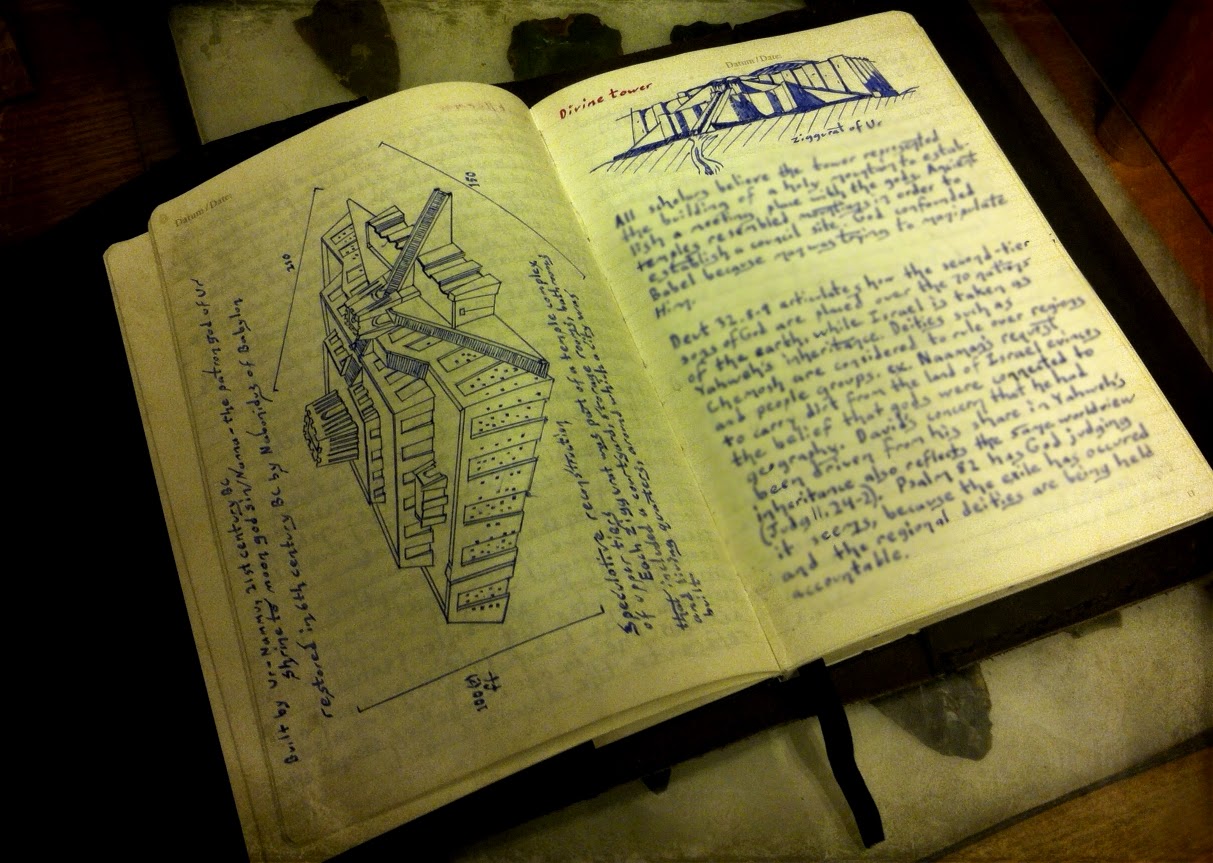 Datum / Date:
Built by Ur-Nammu, 21st century BC
Shrine to moon god Sin/Nanna the patron god of Ur
restored in 6th century BC by Nabonidus of Babylon
210
150
100(?)
ft
Speculative reconstruction
of upper tiers
Each ziggurat was part of a temple complex
that included a courtyard, storage rooms, bathrooms,
and living quarters, around which a city was
built
Datum / Date:
Divine tower
Ziggurat of Ur
All scholars believe the tower represented
the building of a holy mountain to estab-
lish a meeting place with the gods. Ancient
temples resembled mountains in order to
establish a council site. God confounded
Babel because man was trying to manipulate
Him.
Deut 32.8-9 articulates how the second-tier
sons of God are placed over the 70 nations
of the earth, while Israel is taken as
Yahweh's inheritance. Deities such as
Chemosh are considered to rule over regions
and people groups. ex. Naaman's request
to carry dirt from the land of Israel evinces
the belief that gods were connected to
geography. David's concern that he had
been driven from his share in Yahweh's
inheritance also reflects the same worldview
(Judg 11.24). Psalm 82 has God judging
it seems, because the exile has occured
and the regional deities are being held
accountable.